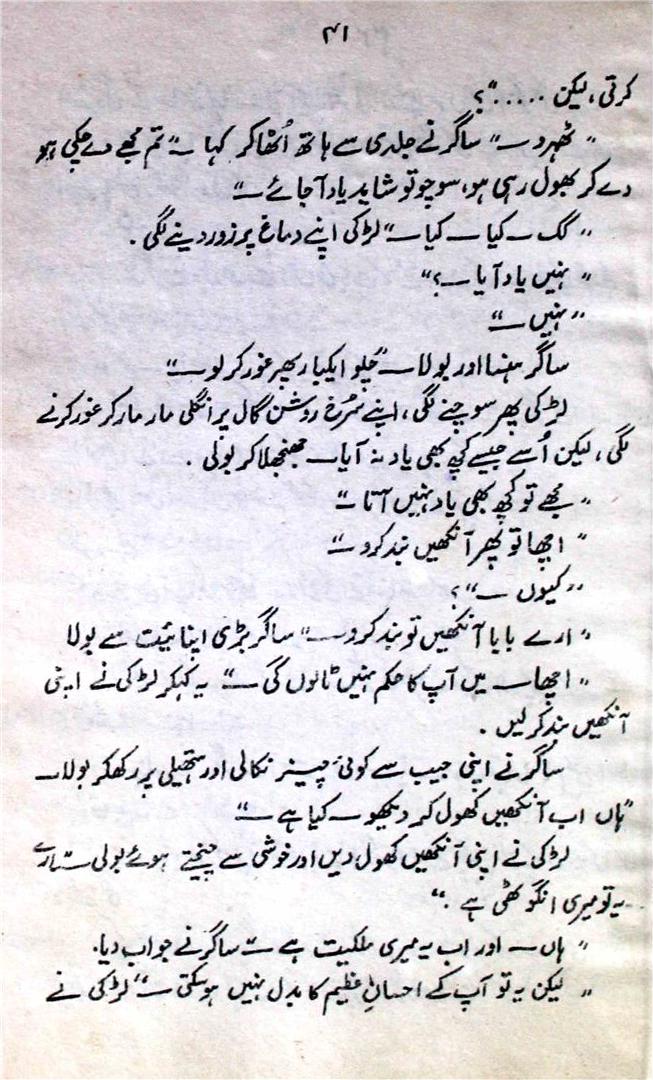 ۴۱
کرتی، لیکن ....."؟
"ٹھہرو—" ساگر نے جلدی سے ہاتھ اُٹھا کر کہا—"تم مجھے دے چکی ہو
دے کر بھول رہی ہو، سوچو تو شاید یاد آ جائے—"
"کک — کیا — کیا—" لڑکی اپنے دماغ پر زور دینے لگی۔
"نہیں یاد آیا—؟"
"نہیں—"
ساگر ہنسا اور بولا—"چلو ایکبار پھر غور کر لو—"
لڑکی پھر سوچنے لگی، اپنے سُرخ روشن گال پر انگلی مار مار کر غور کرنے
لگی، لیکن اُسے جیسے کچھ بھی یاد نہ آیا— جھنجھلا کر بولی۔
"مجھے تو کچھ بھی یاد نہیں آتا—"
"اچھا تو پھر آنکھیں بند کرو—"
"کیوں—"؟
"ارے بابا آنکھیں تو بند کرو—" ساگر بڑی اپنائیت سے بولا
"اچھا— میں آپ کا حکم نہیں ٹالوں گی—" یہ کہکر لڑکی نے اپنی
آنکھیں بند کر لیں۔
ساگر نے اپنی جیب سے کوئی چیز نکالی اور ہتھیلی پر رکھکر بولا—
"ہاں اب آنکھیں کھول کر دیکھو— کیا ہے—"
لڑکی نے اپنی آنکھیں کھول دیں اور خوشی سے چیختے ہوئے بولی—"ارے
یہ تو میری انگوٹھی ہے۔"
"ہاں— اور اب یہ میری ملکیت ہے—" ساگر نے جواب دیا۔
"لیکن یہ تو آپ کے احسانِ عظیم کا بدل نہیں ہو سکتی—" لڑکی نے